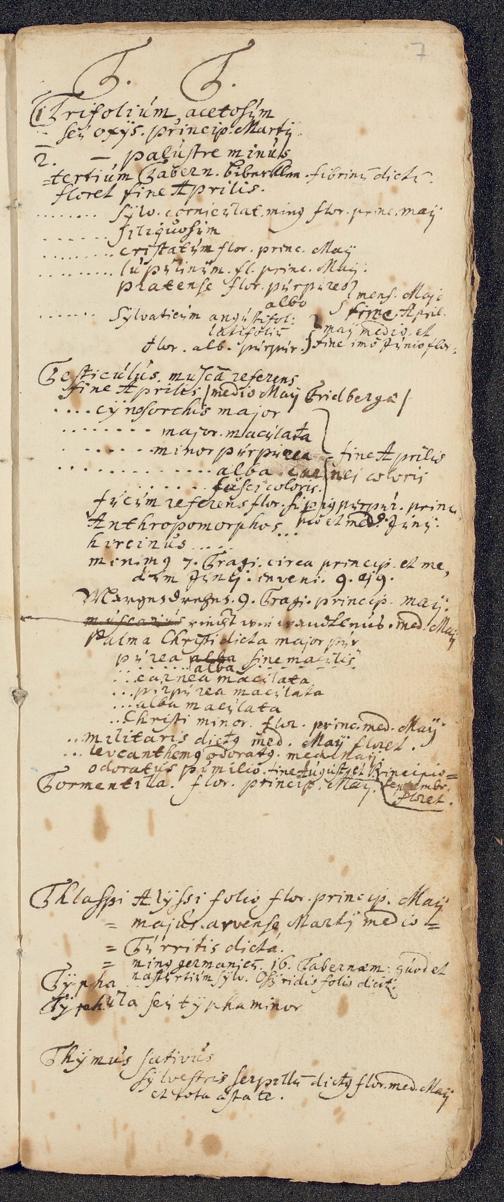 7
T. T.
Trifolium acetosum
seu oxys. princip. Martij
2. —, palustre minus
tertium Tabern. fibrinum dictum.
floret fine Aprilis.
........ sylv. corniculat. minus flor. princ. maij
........ siliquosum
........ cristatum flor. princ. Maij
......... lupulinum. fl. princ. Maij.
pratense flor. purpureo
albo mens. Maje
Sylvaticum angustifol: fine April.
latifoliu maij medio et
flor. alb. purpur. fine imo Junio flor.
Testiculus muscā referens
fine Aprilis / medio Maij Fridbergæ /
.... cynosorchis major
........ major maculata
......... minor purpurea — fine Aprilis
............ alba carnei coloris
........ fusci coloris
fucum referens flor. princ.
Anthropomorphos Junij.
hircinus ....
minimus 7. Tragi. circa princip. et me,
dium Junij. inveni. 9. ej9.
9. Tragi. princip. maij.
med. Maij
Palma Christi dicta major pur
purea alba sine maculis
... alba
... carnea maculata
... purpurea maculata
... alba maculata
... Christi minor. flor. princ. med. Maij
... militaris dictus med. Maij floret.
... leucanthemus odoratus. med. Maij
odoratus pumilio. fine Augusti et Principio =
Tormentilla. flor. princip. Maij. septembr.
floret.
Thlaspi Alyssi folio flor. princip. Maij
= majus. arvense Martij medio =
= Turritis dicta.
= minus germanicum. 16. Tabernæm: quod et
Typha nasturtium sylv. Osyridis folio dicit
Typhula seu typha minor
Thymus sativus
Sylvestris serpillum dictus flor. med. Maij
et tota æstate.